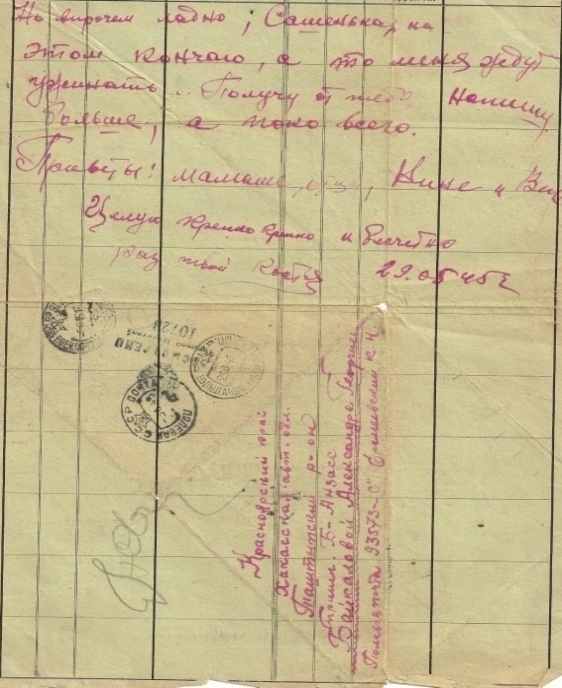 Но впрочем ладно, Сашенька, на
этом кончаю, а то меня ждут
ужинать.. Получу от тебя напишу
больше, а пока всего.
Приветы! мамаше, отцу, Нине и
Целую крепко крепко и
раз твой Костя 29.05 45г
Красноярский край
Хакасская авт. обл.
Таштыпский р-он
Б-Анзасс
Байкаловой Александре Георгиев
Полев. почта 93573-"С"
ПРОСМОТРЕНО
10724
СССР ПОЛЕВАЯ ПОЧТА